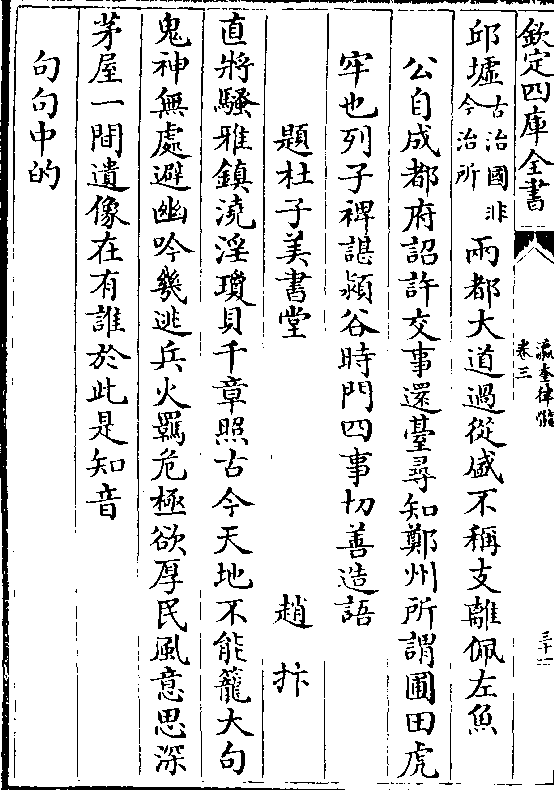 欽定四庫全書
瀛奎律髓
卷三
三十一
邱墟古治國非今治所兩都大道過從盛不稱支離佩左魚
公自成都府詔許交事還臺尋知鄭州所謂圃田虎
牢也列子禆諶潁谷時門四事切善造語
題杜子美書堂 趙抃
直將騷雅鎮澆淫瓊貝千章照古今天地不能籠大句
鬼神無處避幽吟幾逃兵火羈危極欲厚民風意思深
茅屋一間遺像在有誰於此是知音
句句中的